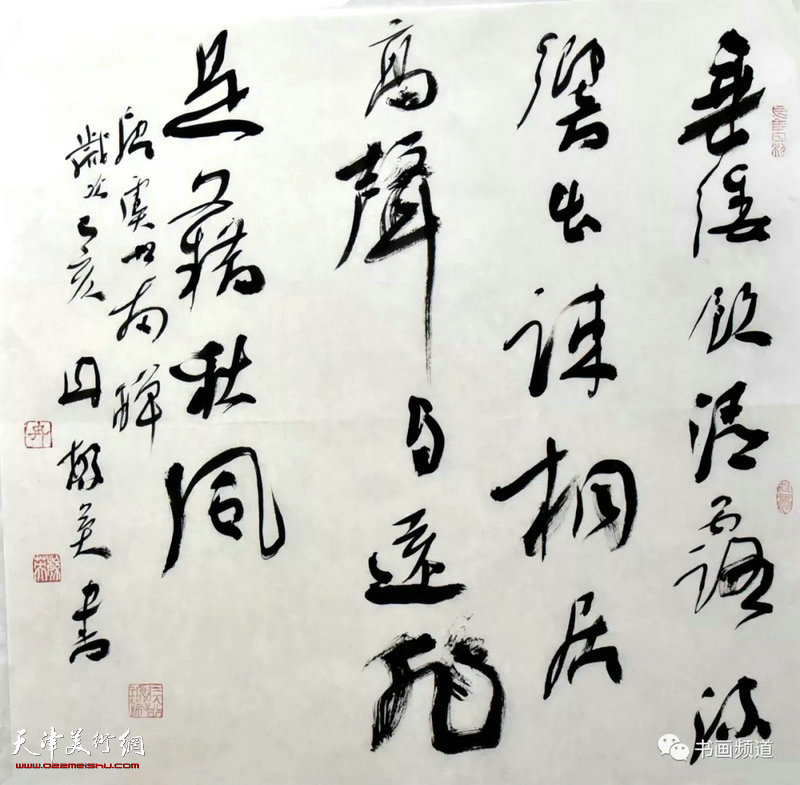 垂緌飲清露流
響出疎桐居
高聲自遠非
是藉秋風
唐虞世南蟬
歲次己亥冉英書
天津美術網
www.022meishu.com
书画频道